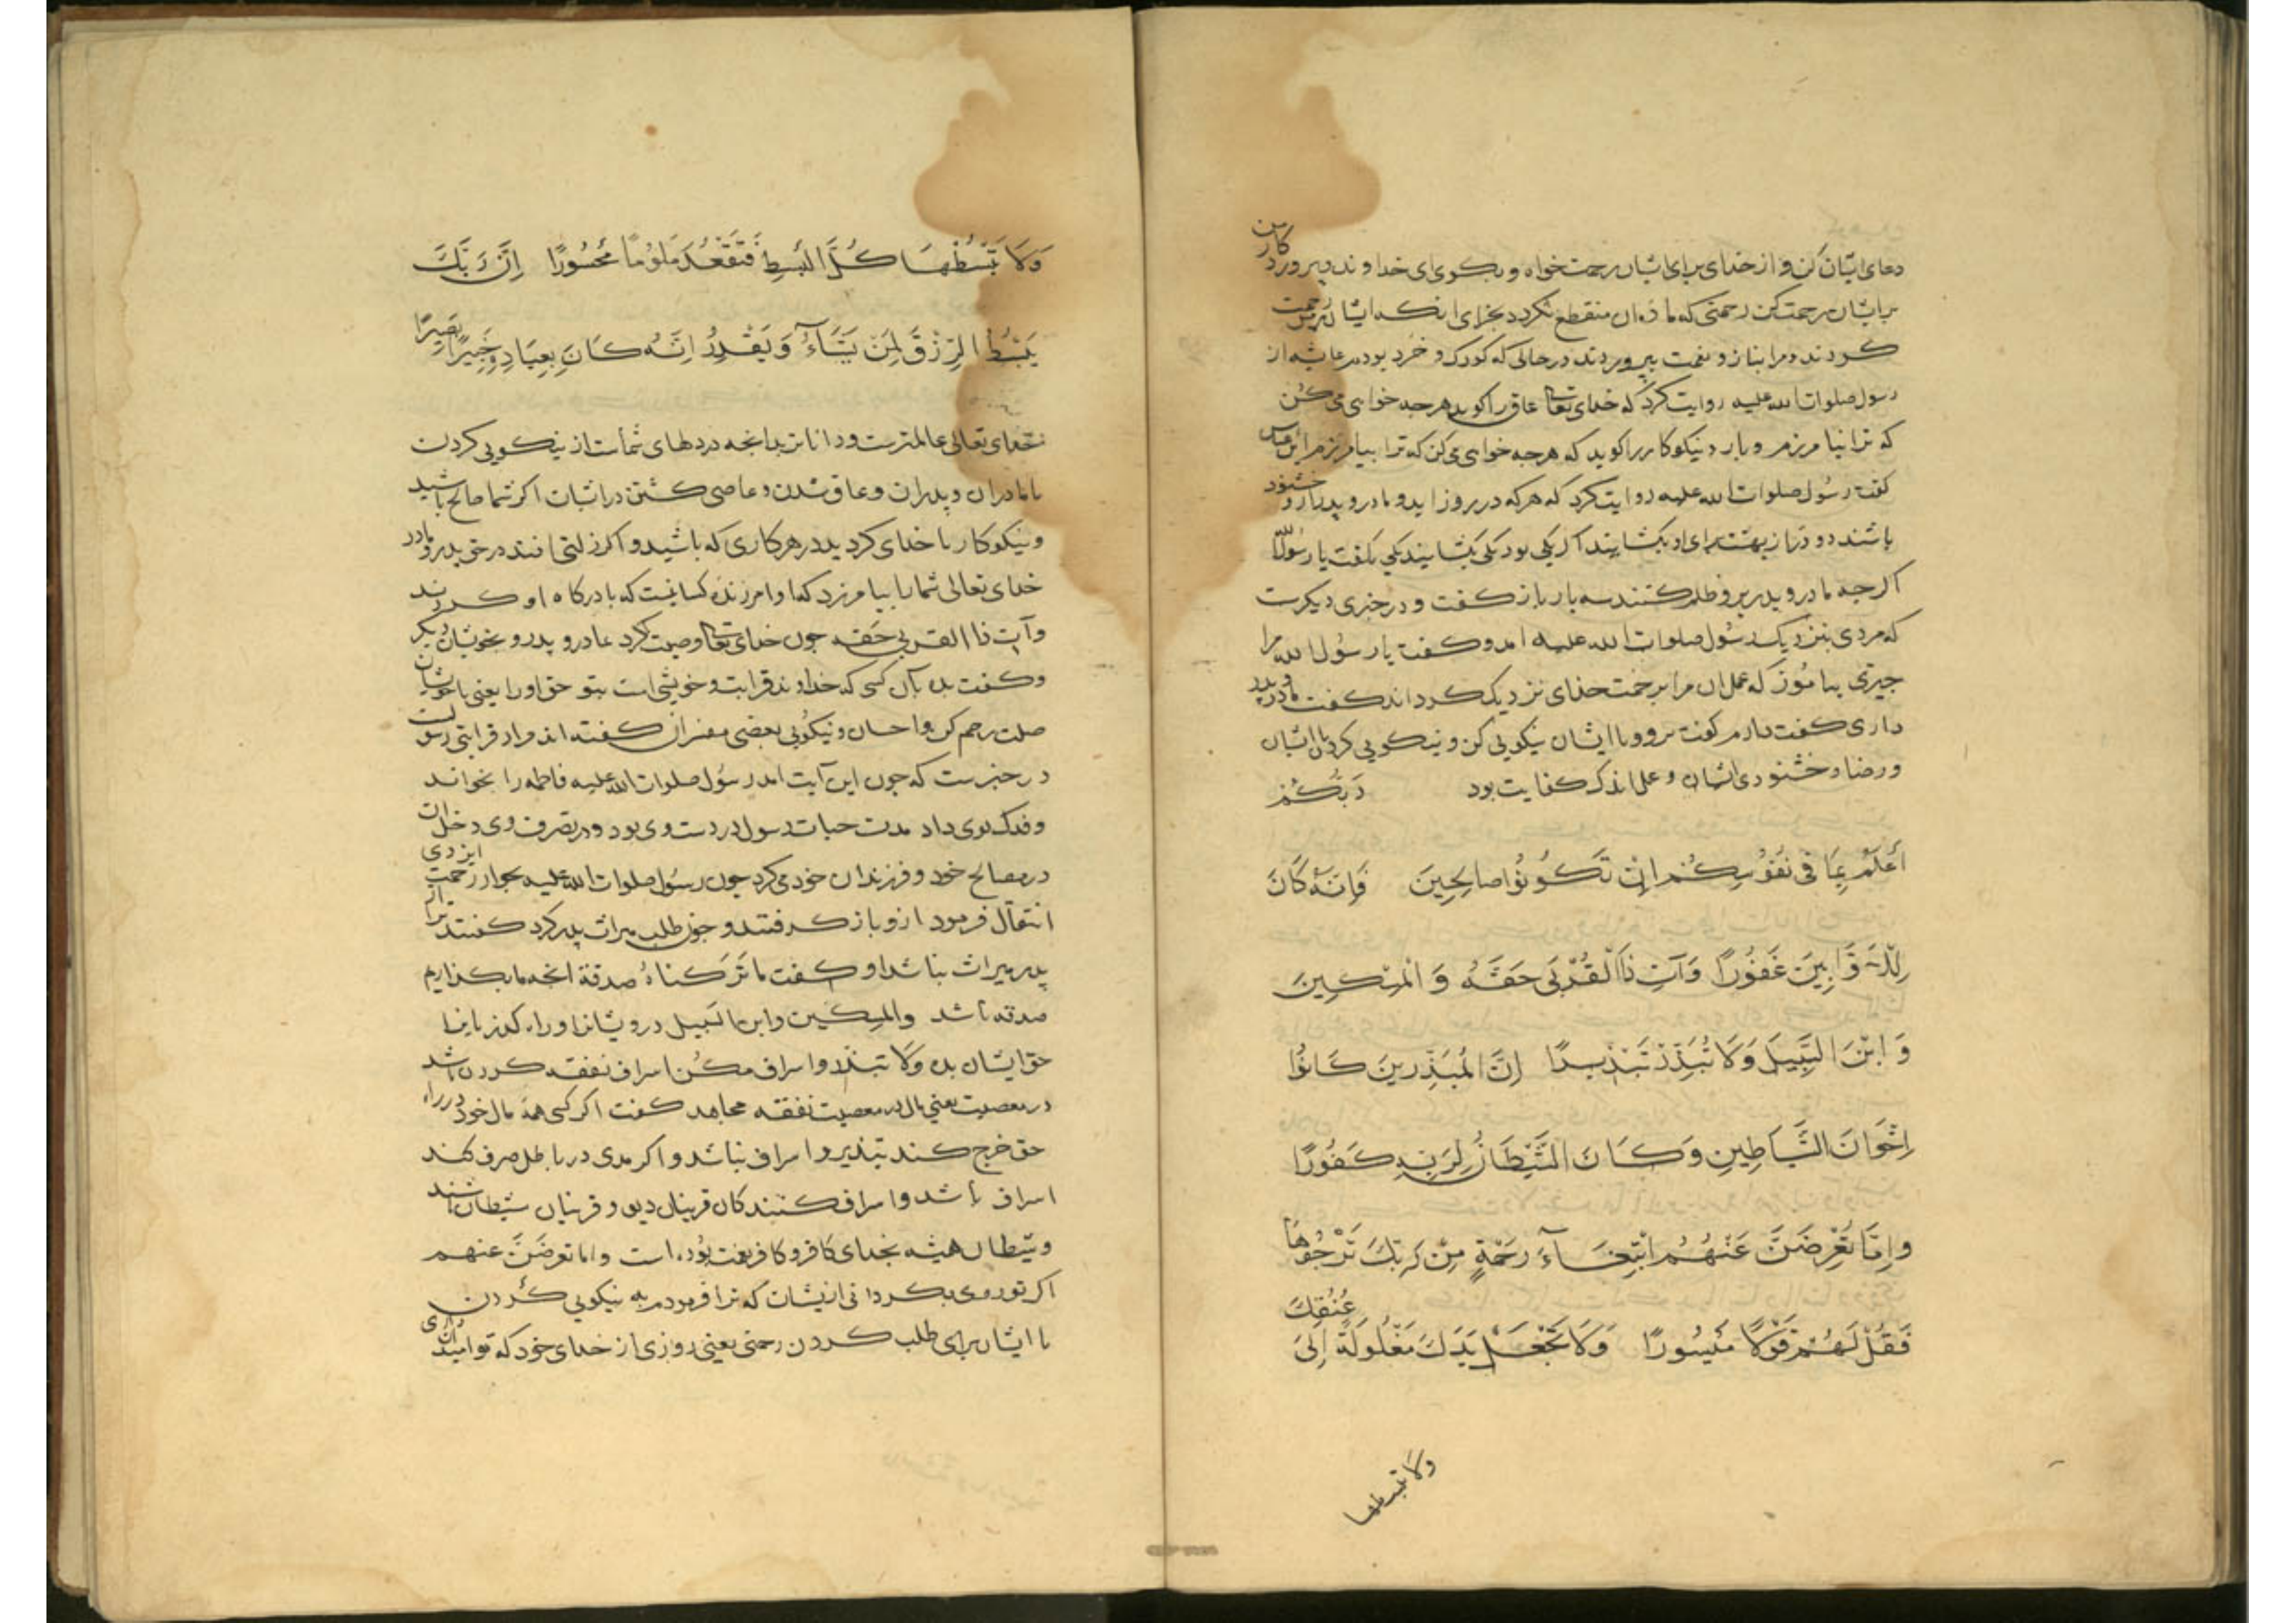 دعای ایشان کن و از خدای برای ایشان رحمت خواه و بکوی ای خداوند و پروردکار من
بر ایشان رحمت کن رحمتی که ماده آن منقطع نکردد بجزای انکه ایشان بر من رحمت
کردند و مرا بناز و نعمت بپروردند در حالی که کودک و خرد بودم عایشه از
رسول صلوات الله علیه روایت کرد که خدای تعالی عاق را کوید هر جه خواهی می کن
که ترا نیامرزم و بار و نیکوکار را کوید که هر جه خواهی می کن که ترا بیامرزم ابن عباس
کفت رسول صلوات الله علیه روایت کرد که هر که در روز اید و مادر و پدر ازو خشنود
باشند دو در از بهشت برای او بکشایند اکر یکی بود یکی بکشایند یکی بکفت یا رسول الله
اکر جه مادر و پدر برو ظلم کنند سه بار باز کفت و در خبری دیکرست
که مردی بنزدیک رسول صلوات الله علیه امد و کفت یا رسول الله مرا
جیزی بیاموز که عمل ان مرا برحمت خدای نزدیک کرداند کفت مادر و پدر
داری کفت دارم کفت برو و با ایشان نیکویی کن و نیکویی کردن با ایشان
و رضا و خشنودی ایشان و عمل اندک کفایت بود رَبُّكُمْ
أَعْلَمُ بِمَا فِي نُفُوسِكُمْ إِنْ تَكُونُوا صَالِحِينَ فَإِنَّهُ كَانَ
لِلْأَوَّابِينَ غَفُورًا وَآتِ ذَا الْقُرْبَى حَقَّهُ وَالْمِسْكِينَ
وَابْنَ السَّبِيلِ وَلَا تُبَذِّرْ تَبْذِيرًا إِنَّ الْمُبَذِّرِينَ كَانُوا
إِخْوَانَ الشَّيَاطِينِ وَكَانَ الشَّيْطَانُ لِرَبِّهِ كَفُورًا
وَإِمَّا تُعْرِضَنَّ عَنْهُمُ ابْتِغَاءَ رَحْمَةٍ مِنْ رَبِّكَ تَرْجُوهَا
فَقُلْ لَهُمْ قَوْلًا مَيْسُورًا وَلَا تَجْعَلْ يَدَكَ مَغْلُولَةً إِلَى عُنُقِكَ
ولا تبسطها
وَلَا تَبْسُطْهَا كُلَّ الْبَسْطِ فَتَقْعُدَ مَلُومًا مَحْسُورًا إِنَّ رَبَّكَ
يَبْسُطُ الرِّزْقَ لِمَنْ يَشَاءُ وَيَقْدِرُ إِنَّهُ كَانَ بِعِبَادِهِ خَبِيرًا بَصِيرًا
خدای تعالی عالمترست و داناتر بدانجه در دلهای شماست از نیکویی کردن
با مادران و پدران و عاق شدن و عاصی کشتن در ایشان اکر شما صالح باشید
و نیکوکار با خدای کردید در هر کاری که باشید و اکر زلتی افتد در حق پدر و مادر
خدای تعالی شما را بیامرزد که او امرزنده کسانیست که با درکاه او کردند
وآت ذا القربی حقه جون خدای تعالی وصیت کرد بمادر و پدر و بخویشان دیکر
و کفت بده بآن کسی که خداوند قرابت و خویشی است بتو حق او را یعنی با خویشان
صلت رحم کن و احسان و نیکویی بعضی مفسران کفته اند مراد قرابتی رسولست
در خبرست که جون این آیت امد رسول صلوات الله علیه فاطمه را بخواند
و فدک بوی داد مدت حیات رسول در دست وی بود و در تصرف وی دخل ان
در مصالح خود و فرزندان خود می کرد جون رسول صلوات الله علیه بجوار رحمت ایزدی
انتقال فرمود ازو باز کرفتند و جون طلب میراث پدر کرد کفتند ترا از
پدر میراث نباشد او کفت ما ترکناه صدقة انجه ما بکذاریم
صدقه باشد والمسکین وابن السبیل درویشان و راه کذریان را
حق ایشان بده ولا تبذر و اسراف مکن اسراف نفقه کردن باشد
در معصیت یعنی مال در معصیت نفقه مجاهد کفت اکر کسی همه مال خود در راه
حق خرج کند تبذیر و اسراف نباشد و اکر مدی در باطل صرف کند
اسراف باشد و اسراف کنندکان قرینان دیو و قرینان شیطان باشند
و شیطان همیشه بخدای کافر و کافر نعمت بوده است و اما تعرضن عنهم
اکر تو روی بکردانی از یشان که ترا فرمودم به نیکویی کردن
با ایشان برای طلب کردن رحمتی یعنی روزی از خدای خود که تو امید داری